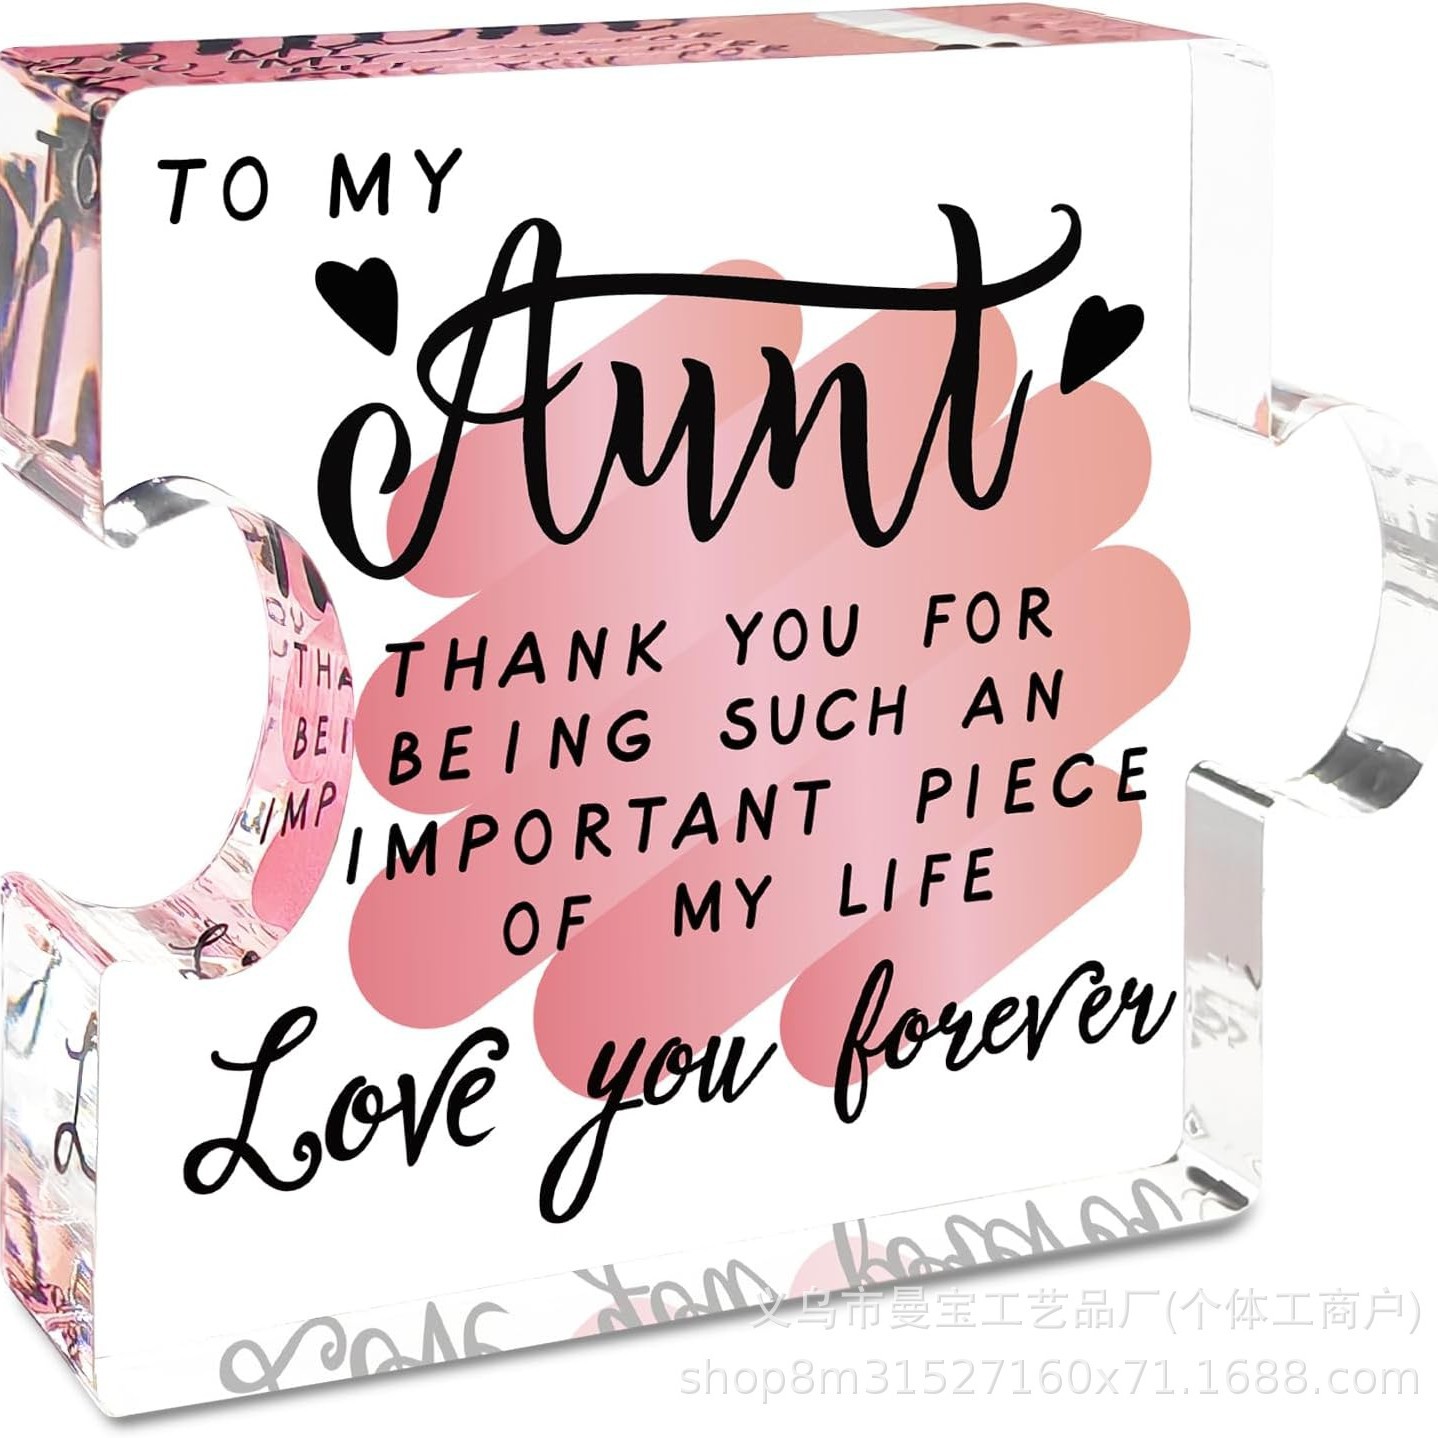 TO MY
Aunt
THANK YOU FOR
BEING SUCH AN
IMPORTANT PIECE
OF MY LIFE
Love you forever
义乌市曼宝工艺品厂(个体工商户)
shop8m31527160x71.1688.com